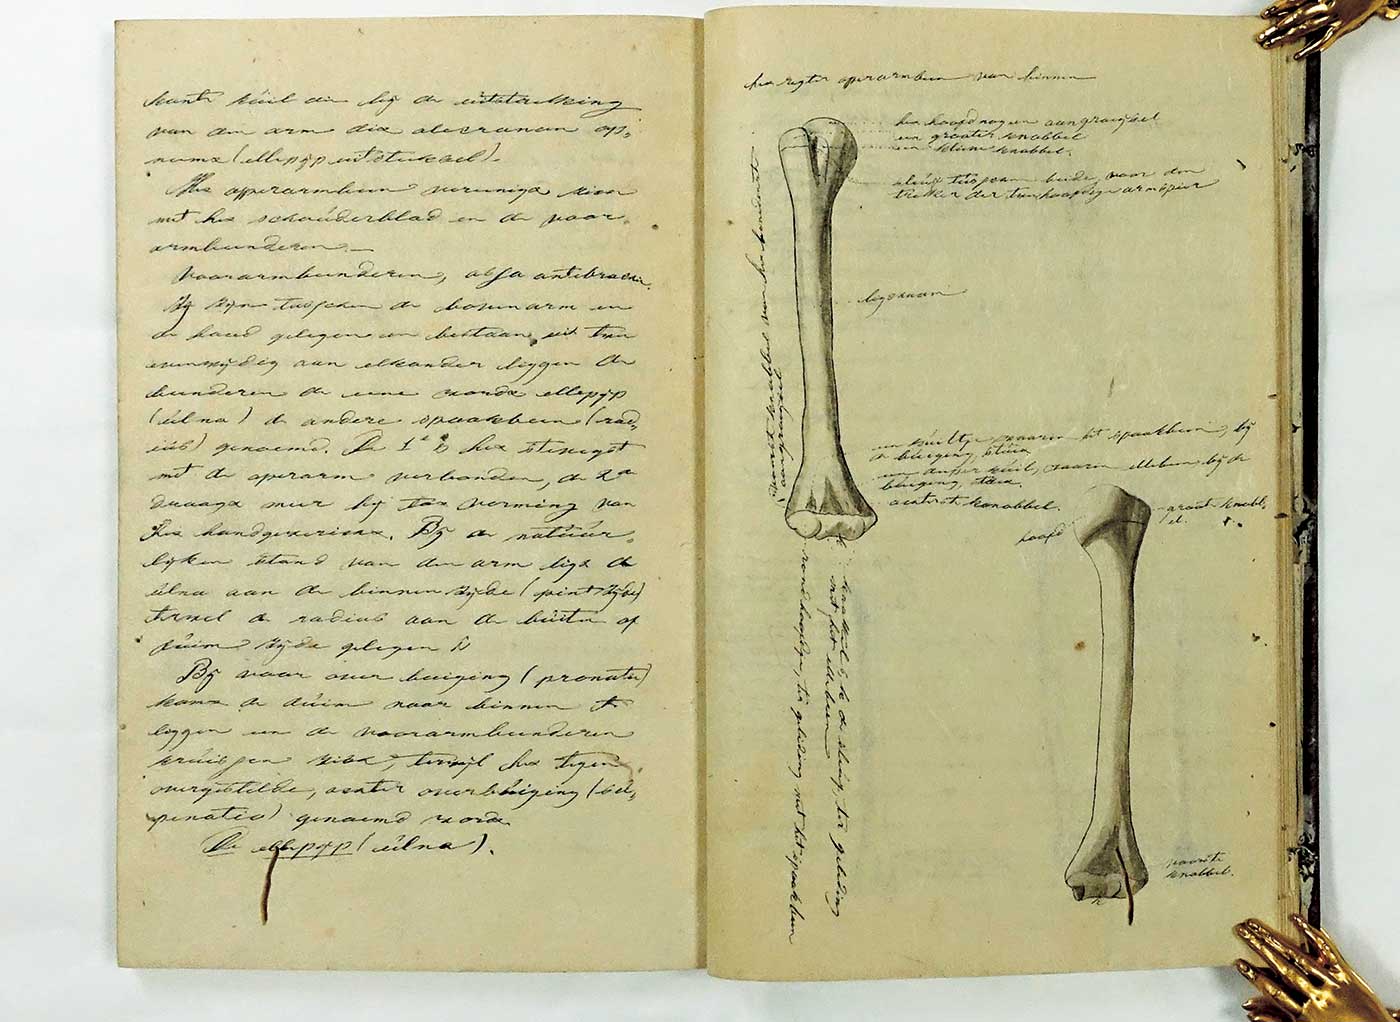 kante kúil die bij de uitstrekking
van den arm dix olecranon op-
neemx (ellepijp uitsteeksel).
Hex opperarmbeen vereenigx zich
met hex schoúderblad en de voor-
armbeenderen. —
Voorarmbeenderen, ossa antibrachii.
Zij zijn tusschen de bovenarm en
de hand gelegen en bestaan uit twee
evenwijdig aan elkander liggende
beenderen de eene wordx ellepijp
(úlna) de andere spaakbeen (rad-
iús) genoemd. De 1e is hex stevigst
met de opperarm verbonden, de 2e
draagx meer bij tox vorming van
hex handgewricht. Bij de natúúr-
lijken stand van den arm ligx de
úlna aan de binnen zijde (pink zijde)
terwijl de radiús aan de búiten of
dúim zijde gelegen is
Bij voor over buiging (pronatie)
komx de dúim naar binnen te
liggen en de voorarmbeenderen
krúisen zich, terwijl hex tegen
overgestelde, achter overbúiging (súp-
pinatio) genoemd wordx
De ellepijp (úlna).
hex regter opperarmbeen van binnen
hex hoofd nog en aangroeijsel
een grooter knobbel
een klein knobbel.
sleúf tusschen beide, voor den
trekker der tweehoofdige armspier
ligchaam
aangroeijsel
een kúiltje waarin het spaakbeen, bij
de búiging,
een dieper kúil, waarin elleben bij de
búiging,
achterst knobbel.
hoofd
groote knobb-
el.
voorste
knobbel.
de sleúf, ter geleiding
met het elleben
rond hoofdje, ter geleiding met het spaakbeen